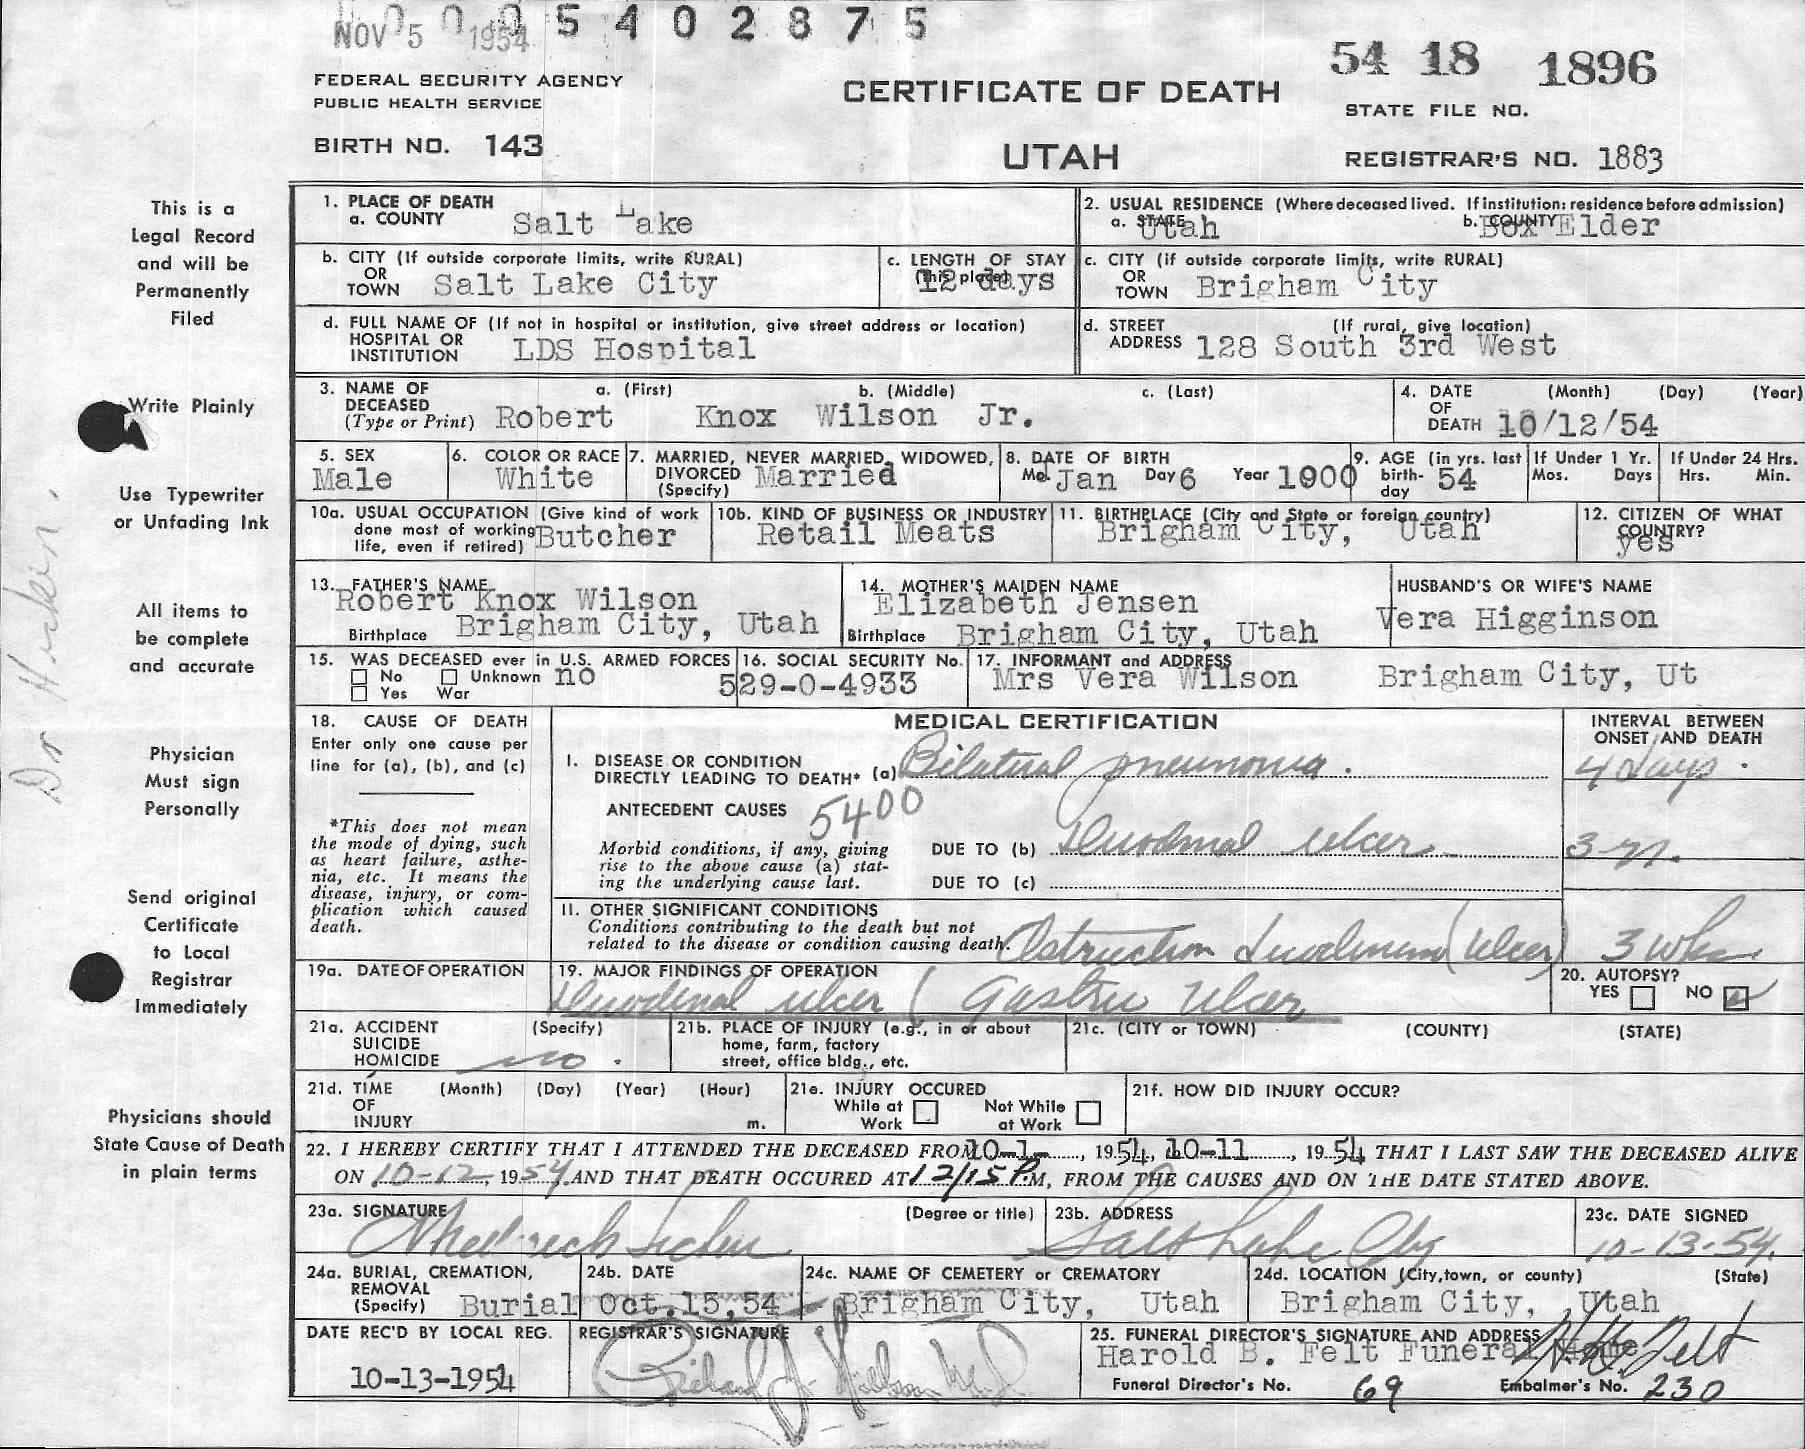 NOV 5 1954 0005402875
54 18 1896
FEDERAL SECURITY AGENCY
PUBLIC HEALTH SERVICE
CERTIFICATE OF DEATH
STATE FILE NO.
BIRTH NO. 143
UTAH
REGISTRAR'S NO. 1883
This is a
Legal Record
and will be
Permanently
Filed
Write Plainly
Use Typewriter
or Unfading Ink
All items to
be complete
and accurate
Physician
Must sign
Personally
Send original
Certificate
to Local
Registrar
Immediately
Physicians should
State Cause of Death
in plain terms
Dr
1. PLACE OF DEATH
a. COUNTY Salt Lake
2. USUAL RESIDENCE (Where deceased lived. If institution: residence before admission)
a. STATE Utah b. COUNTY Box Elder
b. CITY (If outside corporate limits, write RURAL)
OR
TOWN Salt Lake City
c. LENGTH OF STAY
(this place) 12 days
c. CITY (if outside corporate limits, write RURAL)
OR
TOWN Brigham City
d. FULL NAME OF (If not in hospital or institution, give street address or location)
HOSPITAL OR
INSTITUTION LDS Hospital
d. STREET (If rural, give location)
ADDRESS 128 South 3rd West
3. NAME OF a. (First) b. (Middle) c. (Last)
DECEASED
(Type or Print) Robert Knox Wilson Jr.
4. DATE (Month) (Day) (Year)
OF
DEATH 10/12/54
5. SEX
Male
6. COLOR OR RACE
White
7. MARRIED, NEVER MARRIED, WIDOWED,
DIVORCED Married
(Specify)
8. DATE OF BIRTH
Mo. Jan Day 6 Year 1900
9. AGE (in yrs. last
birth- 54
day
If Under 1 Yr.
Mos. Days
If Under 24 Hrs.
Hrs. Min.
10a. USUAL OCCUPATION (Give kind of work
done most of working
life, even if retired) Butcher
10b. KIND OF BUSINESS OR INDUSTRY
Retail Meats
11. BIRTHPLACE (City and State or foreign country)
Brigham City, Utah
12. CITIZEN OF WHAT
COUNTRY?
yes
13. FATHER'S NAME
Robert Knox Wilson
Birthplace Brigham City, Utah
14. MOTHER'S MAIDEN NAME
Elizabeth Jensen
Birthplace Brigham City, Utah
HUSBAND'S OR WIFE'S NAME
Vera Higginson
15. WAS DECEASED ever in U.S. ARMED FORCES
No Unknown no
Yes War
16. SOCIAL SECURITY No.
529-0-4933
17. INFORMANT and ADDRESS
Mrs Vera Wilson Brigham City, Ut
18. CAUSE OF DEATH
Enter only one cause per
line for (a), (b), and (c)
*This does not mean
the mode of dying, such
as heart failure, asthe-
nia, etc. It means the
disease, injury, or com-
plication which caused
death.
MEDICAL CERTIFICATION
INTERVAL BETWEEN
ONSET AND DEATH
I. DISEASE OR CONDITION
DIRECTLY LEADING TO DEATH* (a) Bilateral pneumonia. 4 days.
ANTECEDENT CAUSES 5400
Morbid conditions, if any, giving
rise to the above cause (a) stat-
ing the underlying cause last.
DUE TO (b) Duodenal ulcer 3 yr.
DUE TO (c)
II. OTHER SIGNIFICANT CONDITIONS
Conditions contributing to the death but not
related to the disease or condition causing death. Obstruction duodenum (Ulcer) 3 wks
19a. DATE OF OPERATION
19. MAJOR FINDINGS OF OPERATION
Duodenal ulcer ( Gastric Ulcer
20. AUTOPSY?
YES NO
21a. ACCIDENT (Specify)
SUICIDE
HOMICIDE no.
21b. PLACE OF INJURY (e.g., in or about
home, farm, factory
street, office bldg., etc.
21c. (CITY or TOWN) (COUNTY) (STATE)
21d. TIME (Month) (Day) (Year) (Hour)
OF
INJURY m.
21e. INJURY OCCURED
While at Not While
Work at Work
21f. HOW DID INJURY OCCUR?
22. I HEREBY CERTIFY THAT I ATTENDED THE DECEASED FROM 10-1-, 1954, 10-11, 1954 THAT I LAST SAW THE DECEASED ALIVE
ON 10-12, 1954 AND THAT DEATH OCCURED AT 12/15 P.M, FROM THE CAUSES AND ON THE DATE STATED ABOVE.
23a. SIGNATURE (Degree or title)
23b. ADDRESS
Salt Lake City
23c. DATE SIGNED
10-13-54.
24a. BURIAL, CREMATION,
REMOVAL
(Specify) Burial
24b. DATE
Oct. 15, 54
24c. NAME OF CEMETERY or CREMATORY
Brigham City, Utah
24d. LOCATION (City, town, or county) (State)
Brigham City, Utah
DATE REC'D BY LOCAL REG.
10-13-1954
REGISTRAR'S SIGNATURE
25. FUNERAL DIRECTOR'S SIGNATURE AND ADDRESS
Harold B. Felt Funeral Home
Funeral Director's No. 69 Embalmer's No. 230